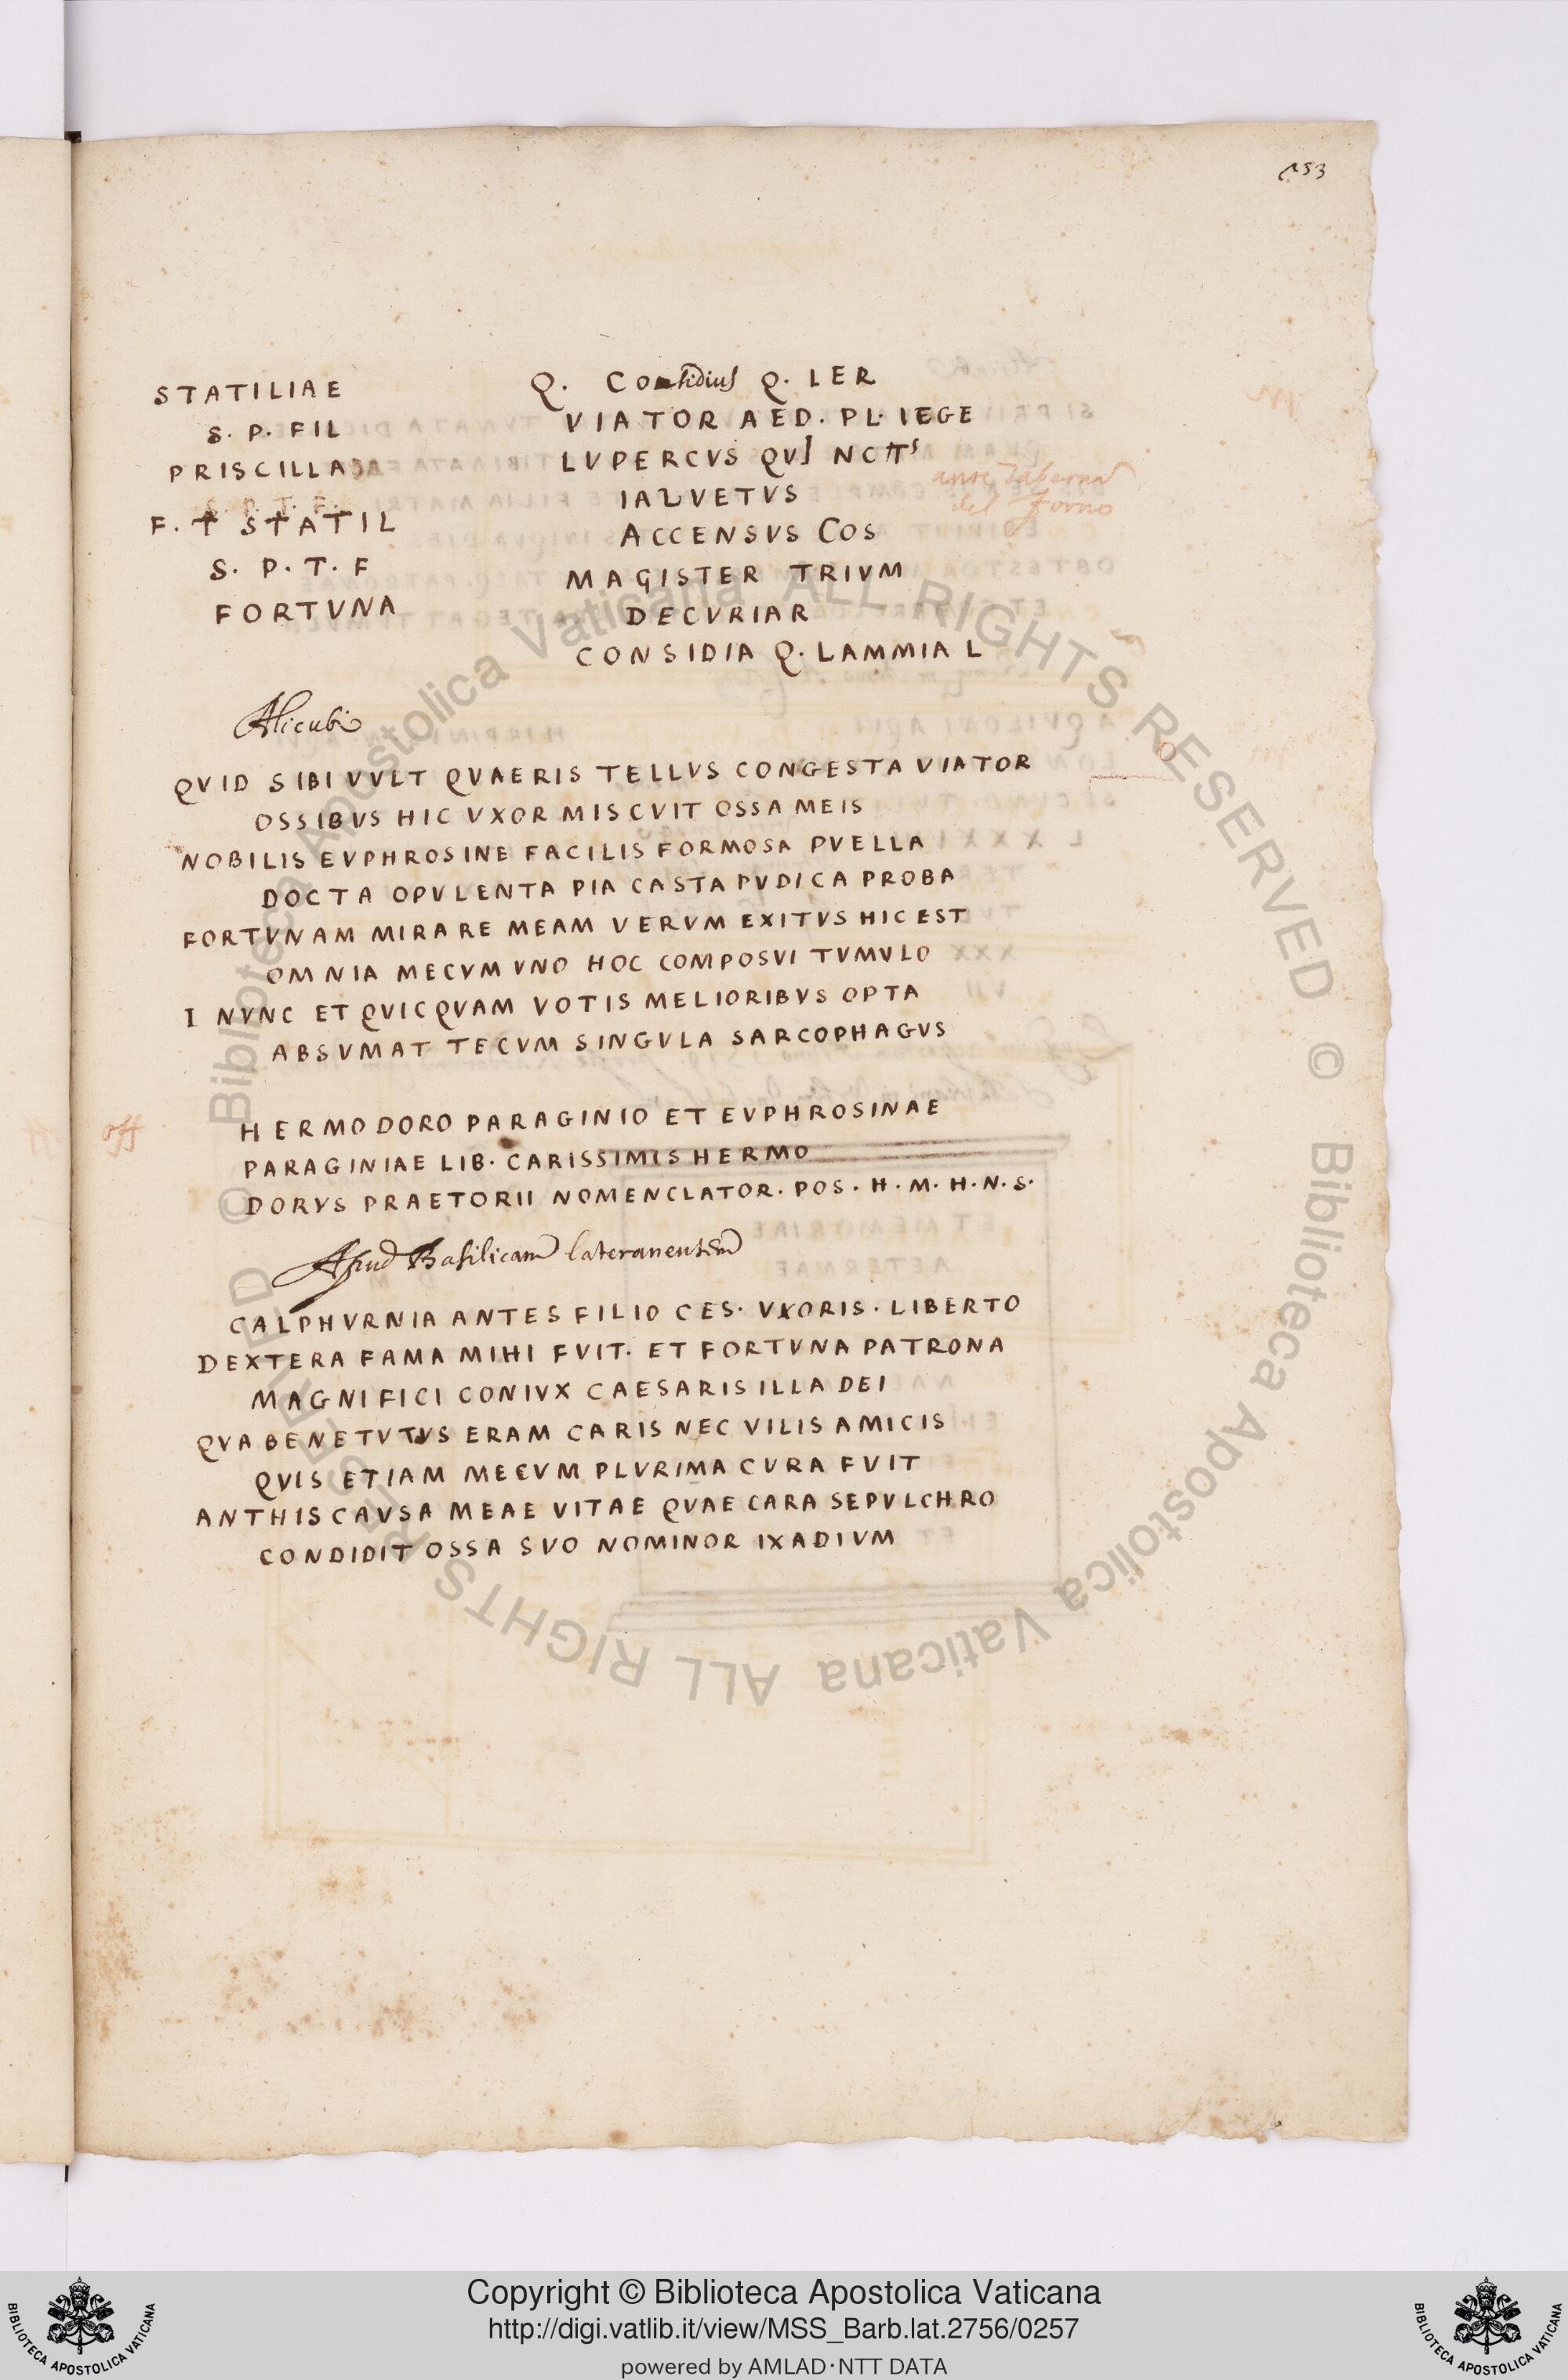 153
STATILIAE
S. P. FIL
PRISCILLA
S. P. T. F.
F. T STATIL
S. P. T. F
FORTVNA
Q. Considius Q. LER
VIATOR AED. PL. IEGE
LVPERCVS QVI NCTTS
ante taberna
del forno
IALVETVS
ACCENSVS COS
MAGISTER TRIVM
DECVRIAR
CONSIDIA Q. LAMMIA L
Alicubi
QVID SIBI VVLT QVAERIS TELLVS CONGESTA VIATOR
OSSIBVS HIC VXOR MISCVIT OSSA MEIS
NOBILIS EVPHROSINE FACILIS FORMOSA PVELLA
DOCTA OPVLENTA PIA CASTA PVDICA PROBA
FORTVNAM MIRARE MEAM VERVM EXITVS HIC EST
OMNIA MECVM VNO HOC COMPOSVI TVMVLO
I NVNC ET QVICQVAM VOTIS MELIORIBVS OPTA
ABSVMAT TECVM SINGVLA SARCOPHAGVS
off
HERMODORO PARAGINIO ET EVPHROSINAE
PARAGINIAE LIB. CARISSIMIS HERMO
DORVS PRAETORII NOMENCLATOR. POS. H. M. H. N. S.
Apud Basilicam lateranensem
CALPHVRNIA ANTES FILIO CES. VXORIS. LIBERTO
DEXTERA FAMA MIHI FVIT. ET FORTVNA PATRONA
MAGNIFICI CONIVX CAESARIS ILLA DEI
QVA BENE TVTVS ERAM CARIS NEC VILIS AMICIS
QVIS ETIAM MECVM PLVRIMA CVRA FVIT
ANTHIS CAVSA MEAE VITAE QVAE CARA SEPVLCHRO
CONDIDIT OSSA SVO NOMINOR IXADIVM
© Biblioteca Apostolica Vaticana ALL RIGHTS RESERVED © Biblioteca Apostolica Vaticana ALL RIGHTS RESERVED
Copyright © Biblioteca Apostolica Vaticana
http://digi.vatlib.it/view/MSS_Barb.lat.2756/0257
powered by AMLAD·NTT DATA
BIBLIOTECA APOSTOLICA VATICANA
BIBLIOTECA APOSTOLICA VATICANA